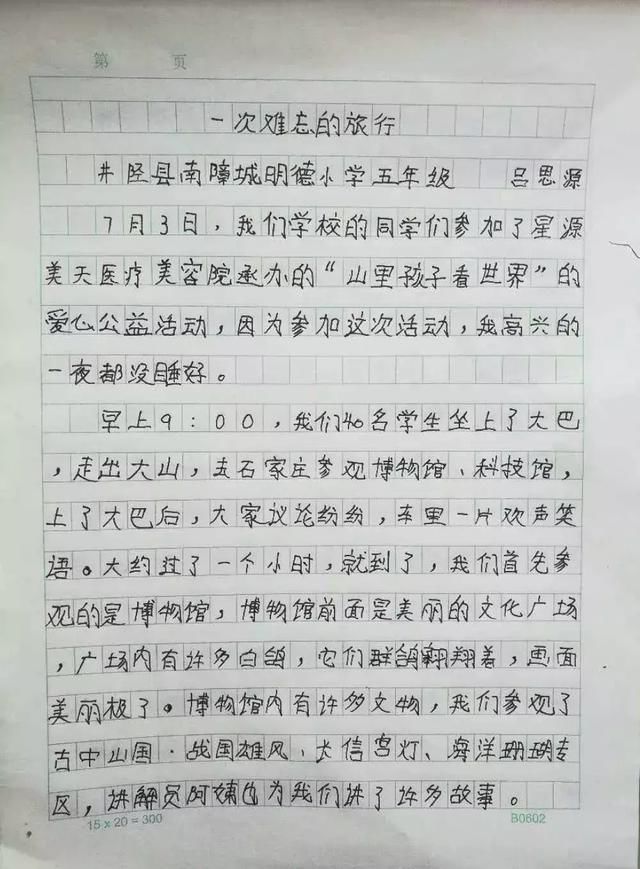 第 页
一次难忘的旅行
井陉县南障城明德小学五年级 吕思源
7月3日，我们学校的同学们参加了星源
美天医疗美容院承办的“山里孩子看世界”的
爱心公益活动，因为参加这次活动，我高兴的
一夜都没睡好。
早上9：00，我们40名学生坐上了大巴
，走出大山，去石家庄参观博物馆、科技馆，
上了大巴后，大家议论纷纷，车里一片欢声笑
语。大约过了一个小时，就到了，我们首先参
观的是博物馆，博物馆前面是美丽的文化广场
，广场内有许多白鸽，它们群鸽翱翔着，画面
美丽极了。博物馆内有许多文物，我们参观了
古中山国·战国雄风、长信宫灯、海洋珊瑚专
区，讲解员阿姨也为我们讲了许多故事。
15×20=300 B0602